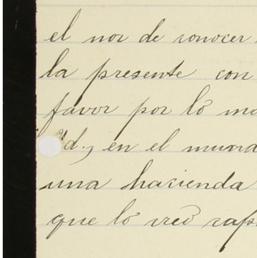 el nor de conocer
la presente con
favor por lo
d., en el
una hacienda
que lo